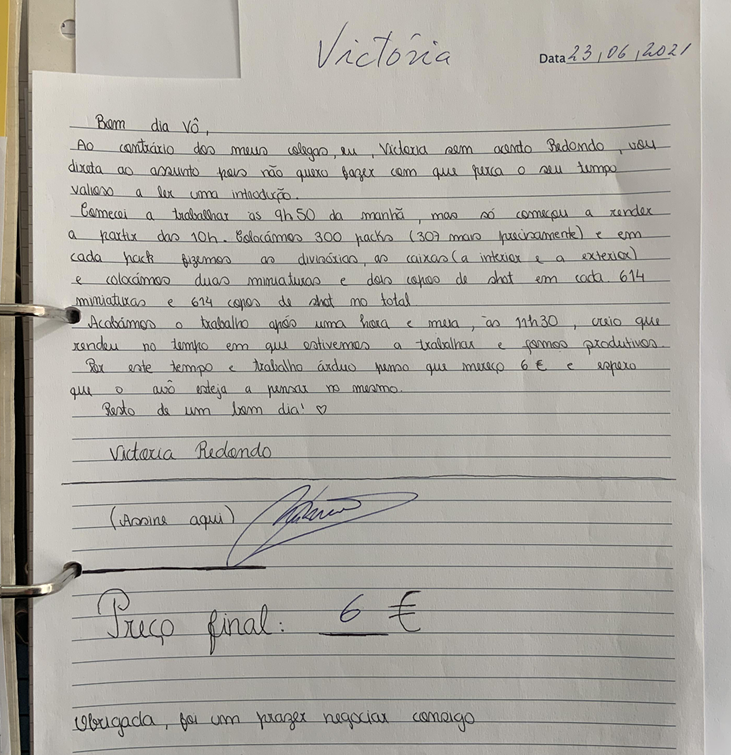 Victória
Data 23/06/2021
Bom dia Vô,
Ao contrário dos meus colegas, eu, Victoria sem acento Redondo, vou
direta ao assunto pois não quero fazer com que perca o seu tempo
valioso a ler uma introdução.
Comecei a trabalhar às 9h50 da manhã, mas só começou a render
a partir das 10h. Colocámos 300 packs (307 mais precisamente) e em
cada pack fizemos as divisórias, as caixas (a interior e a exterior)
e colocámos duas miniaturas e dois copos de shot em cada. 614
miniaturas e 614 copos de shot no total
Acabámos o trabalho após uma hora e meia, às 11h30, creio que
rendeu no tempo em que estivemos a trabalhar e fomos produtivos.
Por este tempo e trabalho árduo penso que mereço 6 € e espero
que o avô esteja a pensar no mesmo.
Resto de um bom dia! ♡
Victoria Redondo
(Assine aqui)
Preço final: 6 €
Obrigada, foi um prazer negociar consigo